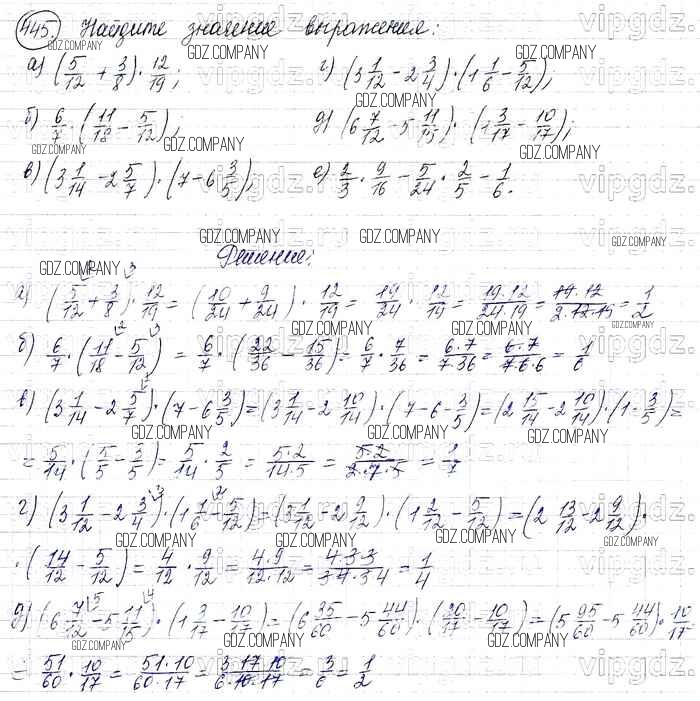 445. Найдите значение выражения:
а) (5/12 + 3/8) · 12/19; г) (3 1/12 - 2 3/4) · (1 1/6 - 5/12);
б) 6/7 · (11/18 - 5/12); д) (6 7/12 - 5 11/15) · (1 3/17 - 10/17);
в) (3 1/14 - 2 5/7) · (7 - 6 3/5); е) 2/3 · 9/16 - 5/24 · 2/5 - 1/6.
Решение:
а) (5/12 + 3/8) · 12/19 = (10/24 + 9/24) · 12/19 = 19/24 · 12/19 = 19·12/24·19 = 19·12/2·12·19 = 1/2
б) 6/7 · (11/18 - 5/12) = 6/7 · (22/36 - 15/36) = 6/7 · 7/36 = 6·7/7·36 = 6·7/7·6·6 = 1/6
в) (3 1/14 - 2 5/7) · (7 - 6 3/5) = (3 1/14 - 2 10/14) · (7 - 6 - 3/5) = (2 15/14 - 2 10/14) · (1 - 3/5) =
= 5/14 · (5/5 - 3/5) = 5/14 · 2/5 = 5·2/14·5 = 5·2/2·7·5 = 1/7
г) (3 1/12 - 2 3/4) · (1 1/6 - 5/12) = (3 1/12 - 2 9/12) · (1 2/12 - 5/12) = (2 13/12 - 2 9/12) ·
· (14/12 - 5/12) = 4/12 · 9/12 = 4·9/12·12 = 4·3·3/3·4·3·4 = 1/4
д) (6 7/12 - 5 11/15) · (1 3/17 - 10/17) = (6 35/60 - 5 44/60) · (20/17 - 10/17) = (5 95/60 - 5 44/60) · 10/17 =
= 51/60 · 10/17 = 51·10/60·17 = 3·17·10/6·10·17 = 3/6 = 1/2
GDZ.COMPANY
vipgdz.ru